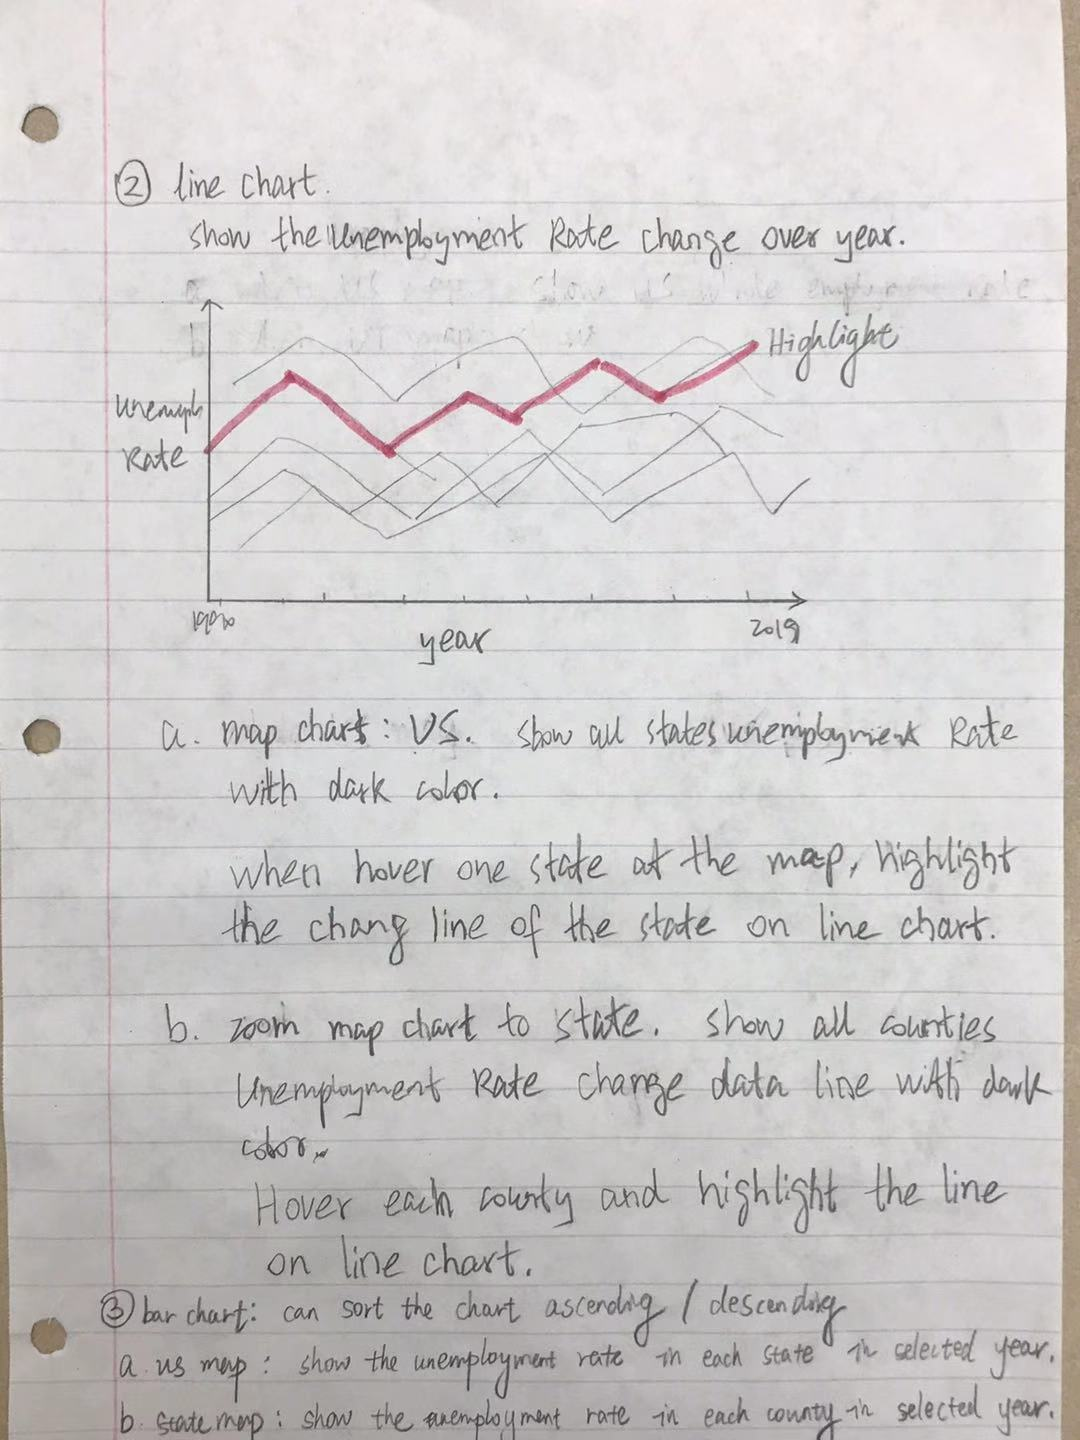 ② line chart.
show the Unemployment Rate change over year.
Highlight
Unemplo
Rate
1990
2019
year
a. map chart: US. show all states unemployment Rate
with dark color.
when hover one state at the map, highlight
the chang line of the state on line chart.
b. zoom map chart to state. show all counties
Unemployment Rate change data line with dark
color.
Hover each county and highlight the line
on line chart.
③ bar chart: can sort the chart ascending / descending
a. us map: show the unemployment rate in each state in selected year.
b. state map: show the unemployment rate in each county in selected year.